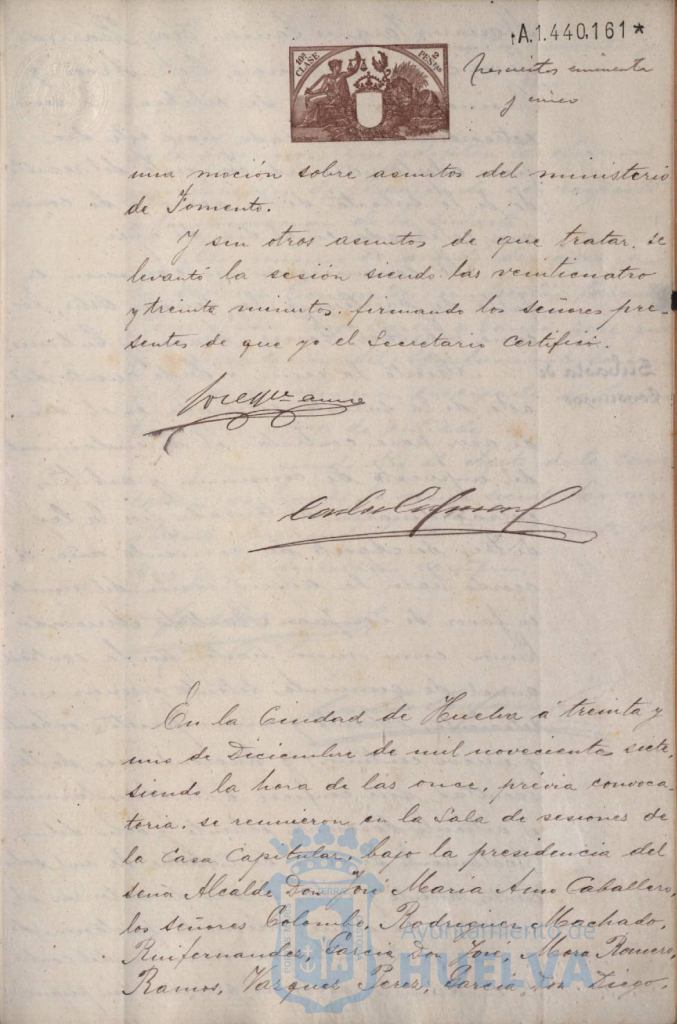 A.1.440.161*
10ª CLASE 2 PESTAS
y cinco
una moción sobre asuntos del ministerio
de Fomento.
Y sin otros asuntos de que tratar, se
levantó la sesión siendo las veinticuatro
y treinta minutos, firmando los señores pre-
sentes de que yo el Secretario certifico.
En la Ciudad de Huelva á treinta y
uno de Diciembre de mil novecientos siete,
siendo la hora de las once, prévia convoca-
toria, se reunieron en la Sala de sesiones de
la Casa Capitular, bajo la presidencia del
señor Alcalde Don José Maria Amo Caballero,
los señores Colombo, Rodriguez Machado,
Ruifernandez, Garcia Don José, Mora Romero,
Ramos, Vazquez Perez, Garcia Don Diego,
Ayuntamiento de
HUELVA